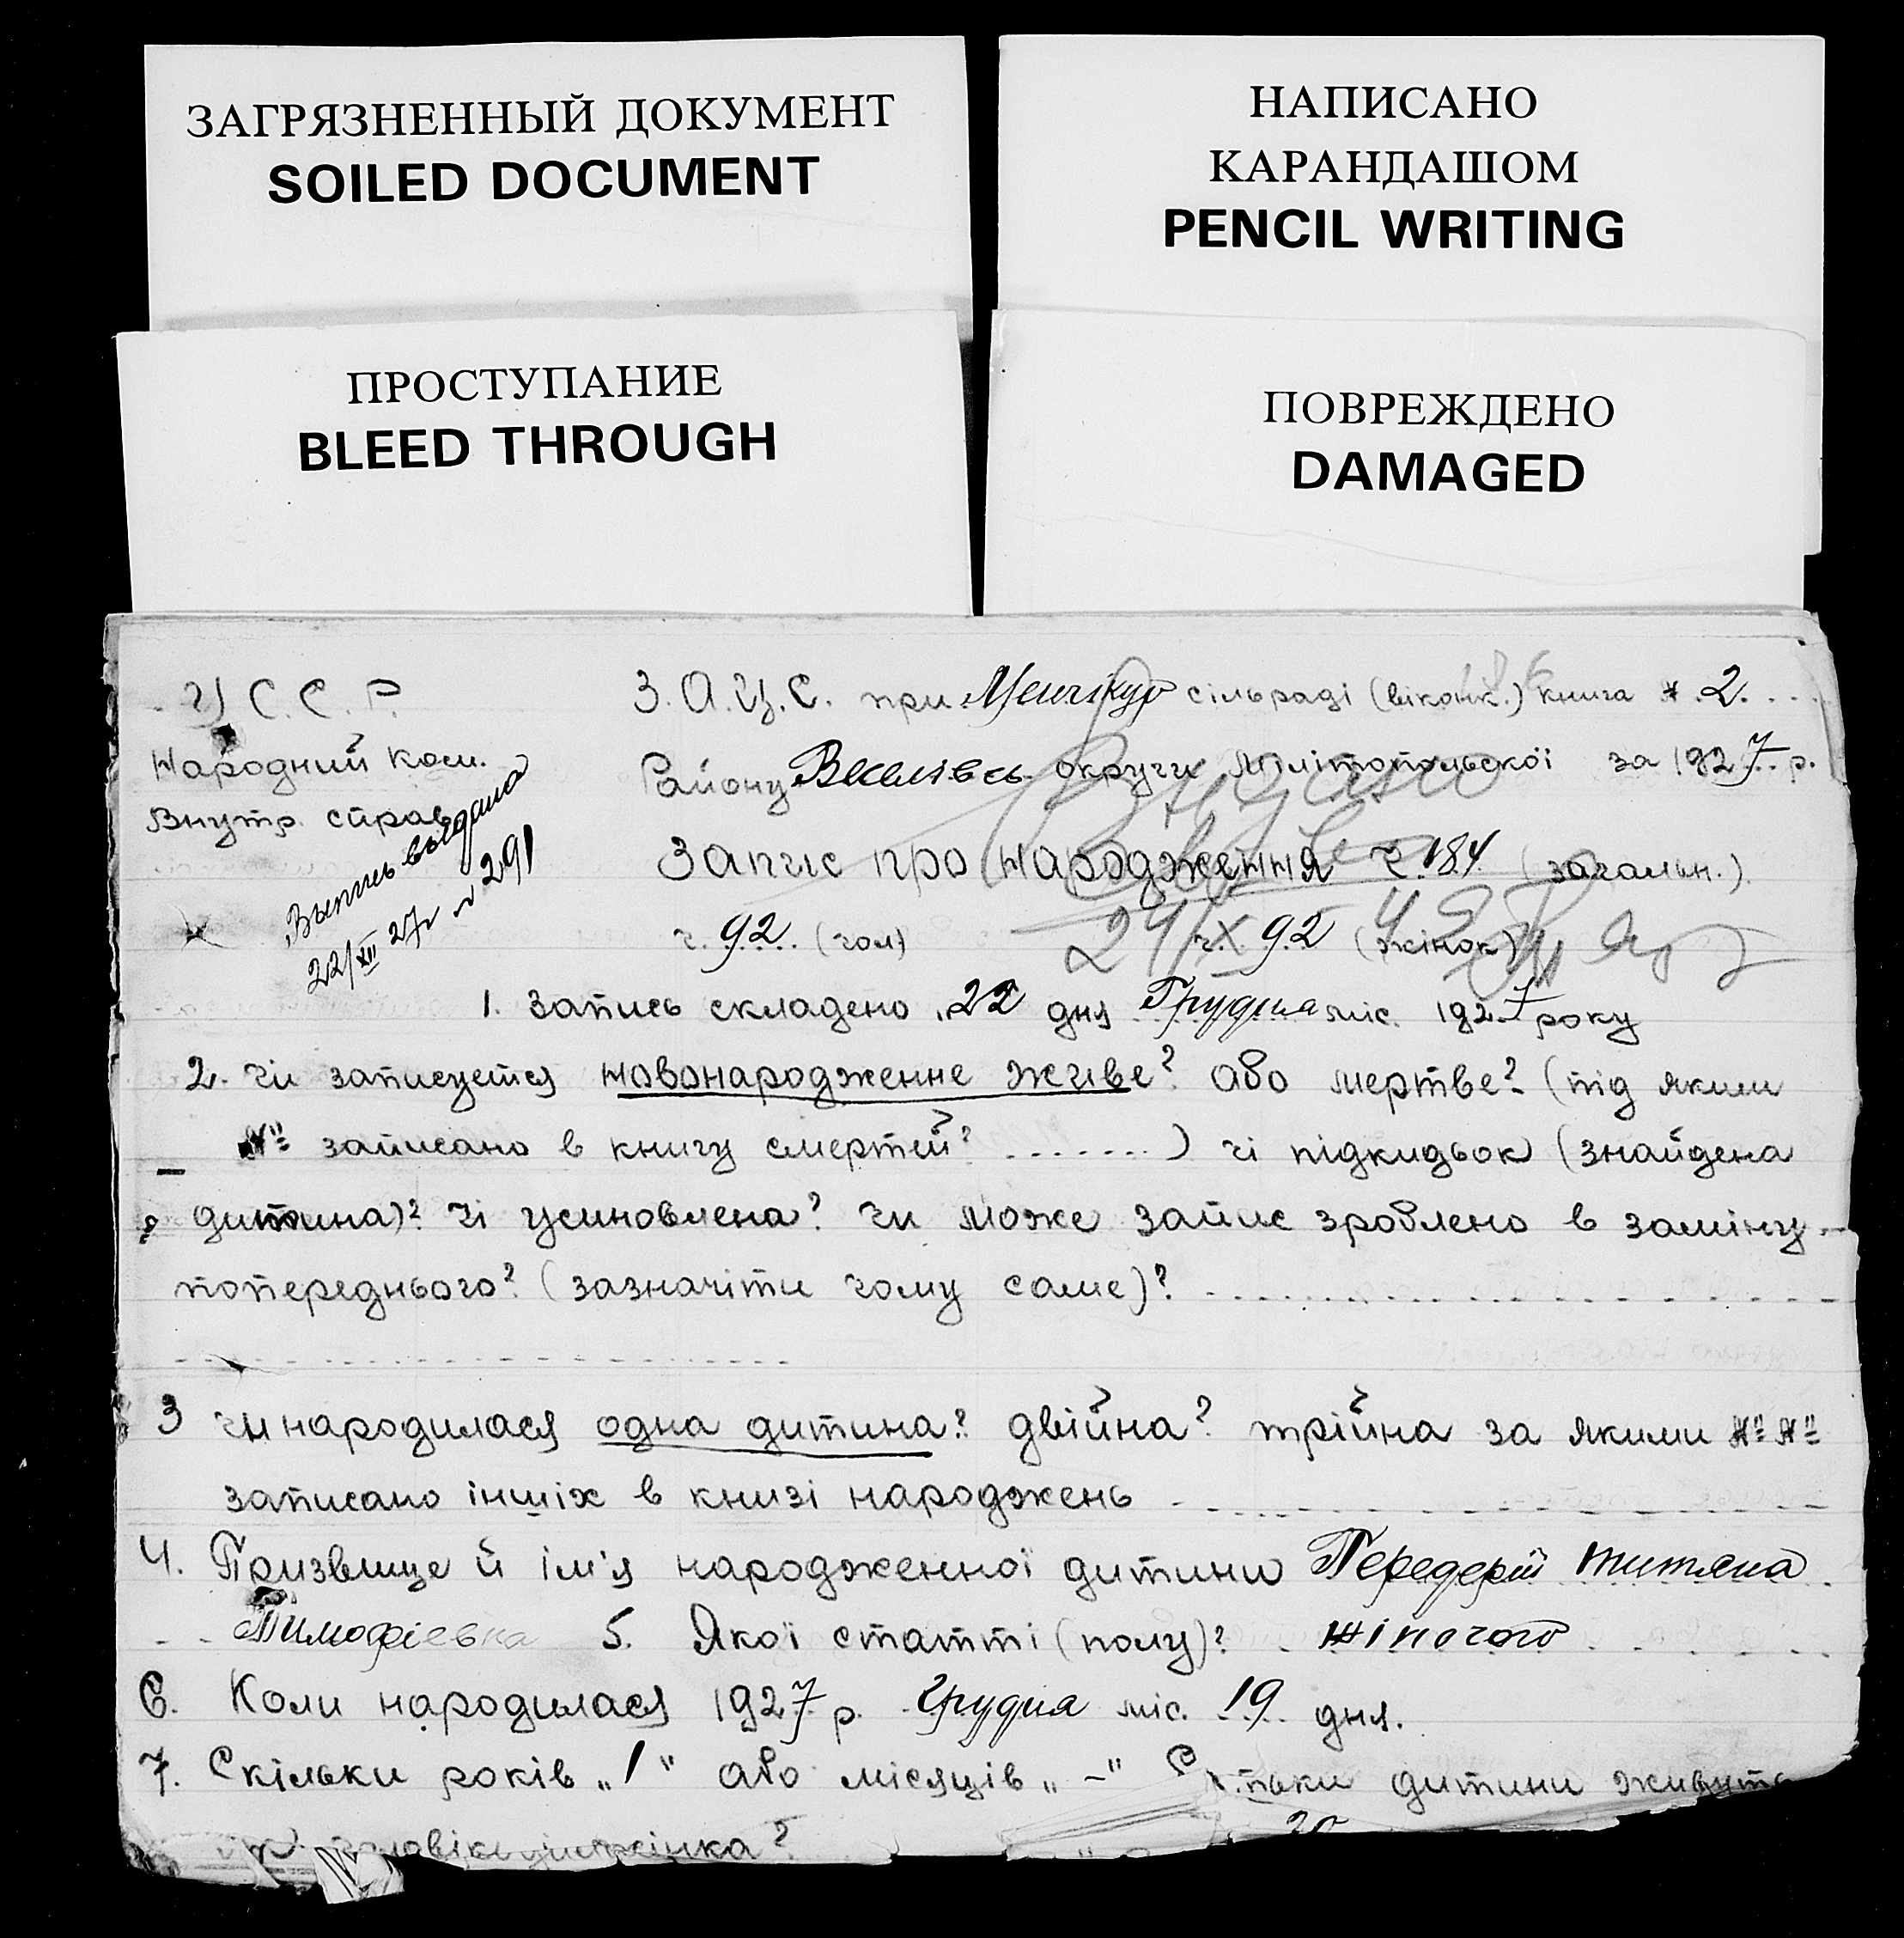 ЗАГРЯЗНЕННЫЙ ДОКУМЕНТ
SOILED DOCUMENT
НАПИСАНО
КАРАНДАШОМ
PENCIL WRITING
ПРОСТУПАНИЕ
BLEED THROUGH
ПОВРЕЖДЕНО
DAMAGED
У С. С. Р.
Народний Ком.
Внутр. справ
Выпись выдана
22/XII 27г № 291
З. А. Ц. С. при сільраді (віконк.) книга № 2.
Району Веселівсь. округи Мелітопольскої за 1927 р.
Запис про народження ч. 184 (загальн.)
ч. 92. (чол) ч. 92 (жінок)
1. Запись складено 22 дня Грудня міс. 1927 року
2. Чи записуется новонародженне живе? або мертве? (під яким
№ записано в книгу смертей? ........) чі підкидьок (знайдена
дитина)? чі усиновлена? чи може запис зроблено в заміну
попереднього? (зазначіти чому саме)?
3 чи народилася одна дитина? двійна? трійна за якими №№
записано іншіх в книзі народжень
4. Призвище й ім'я народженної дитини Передерій Титяна
Тимофієвна 5. Якої статті (полу)? жіночого
6. Коли народилася 1927 р. Грудня міс. 19 дня.
7. Скільки років „1" або місяців „-" дитини живуть
жінка?